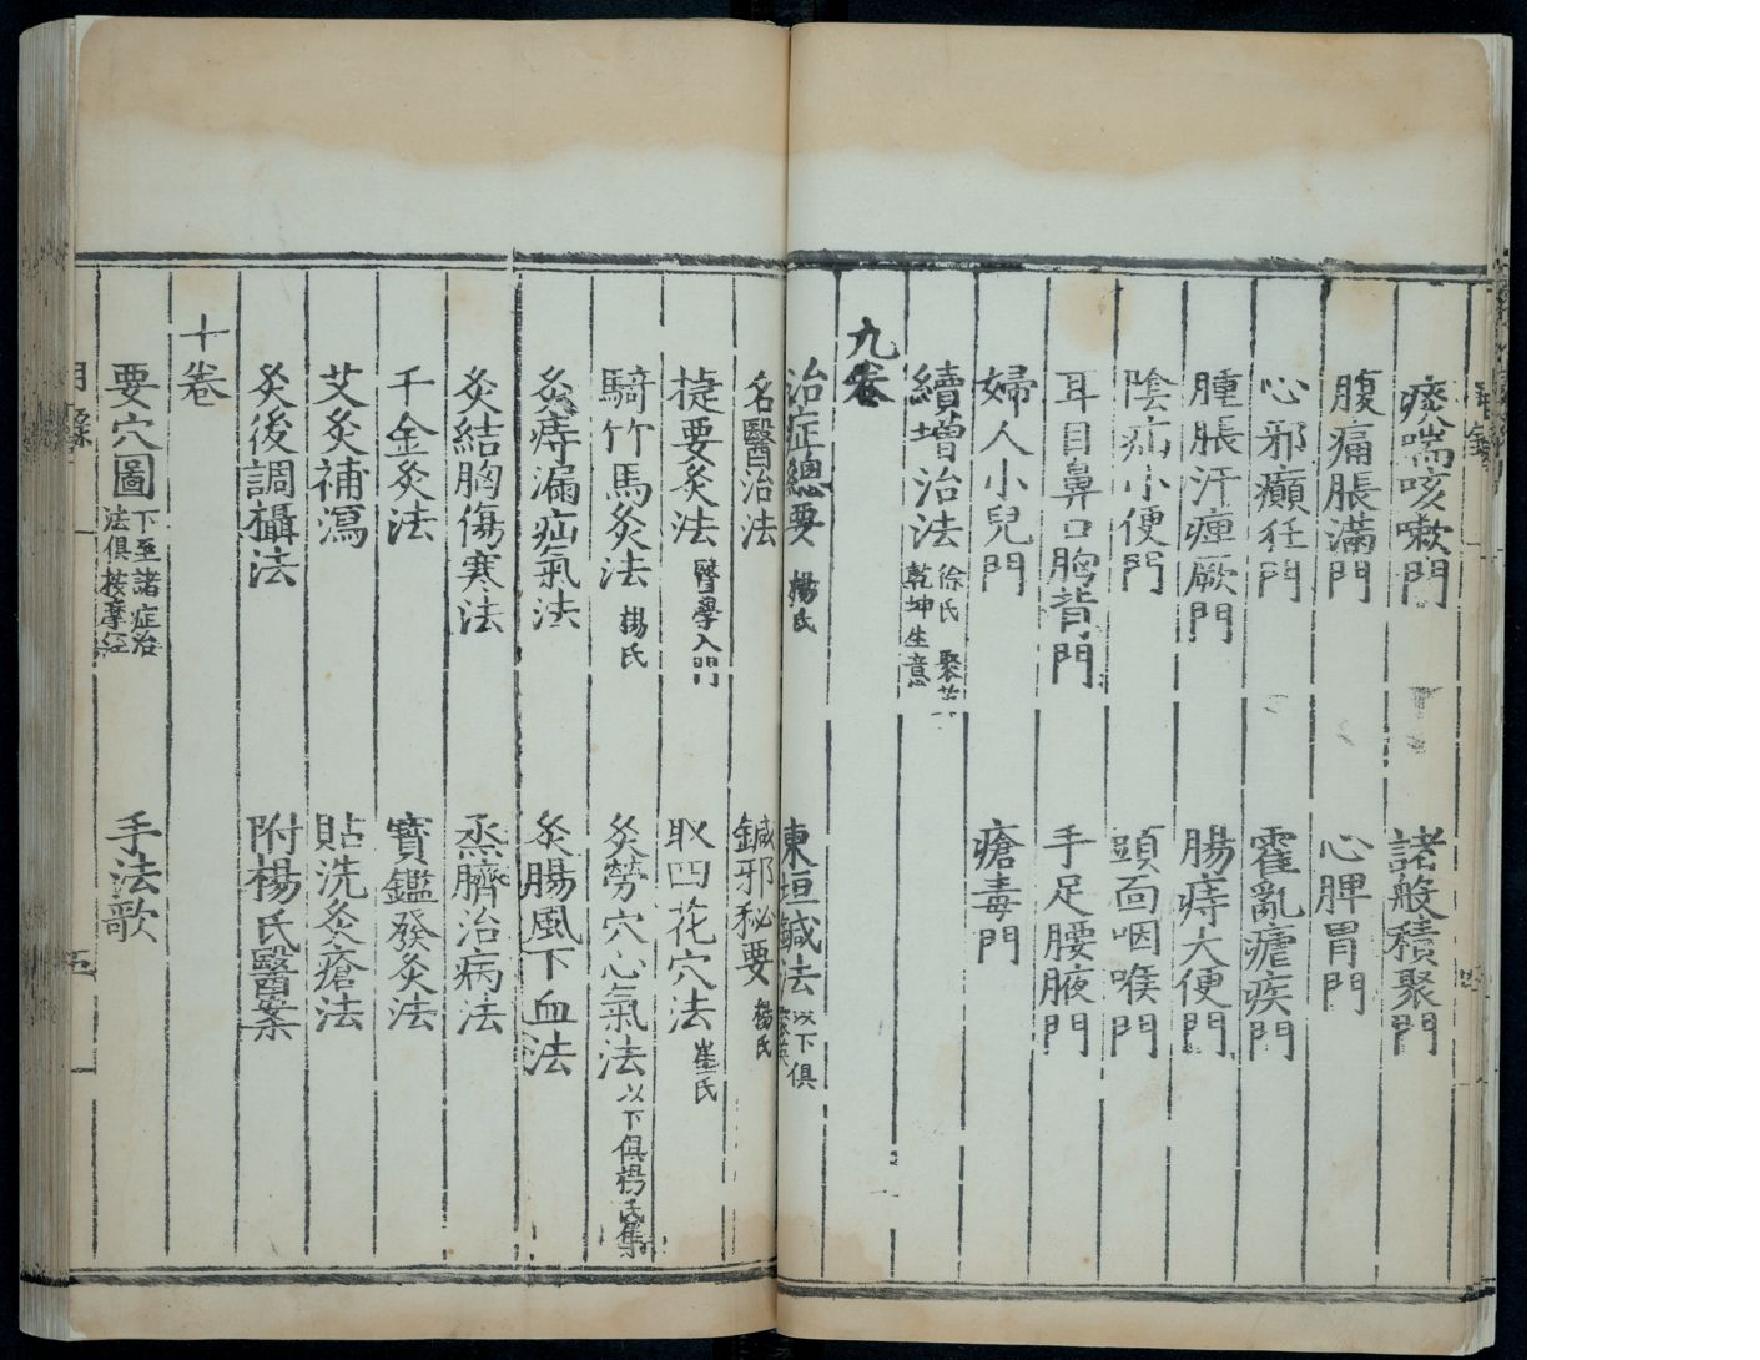 痰喘咳嗽門 諸般積聚門
腹痛脹滿門 心脾胃門
心邪癲狂門 霍亂瘧疾門
腫脹汗痺厥門 腸痔大便門
陰疝小便門 頭面咽喉門
耳目鼻口胸背門 手足腰腋門
婦人小兒門 瘡毒門
續增治法 徐氏 聚英 乾坤生意
九卷
治症總要 楊氏 東垣鍼法 以下俱聚英
名醫治法 鍼邪秘要 楊氏
捷要灸法 醫學入門 取四花穴法 崔氏
騎竹馬灸法 楊氏 灸勞穴心氣法 以下俱楊氏集
灸痔漏疝氣法 灸腸風下血法
灸結胸傷寒法 烝臍治病法
千金灸法 寶鑑發灸法
艾灸補瀉 貼洗灸瘡法
灸後調攝法 附楊氏醫案
十卷
要穴圖 下至諸症治法俱按摩經 手法歌
目錄 五